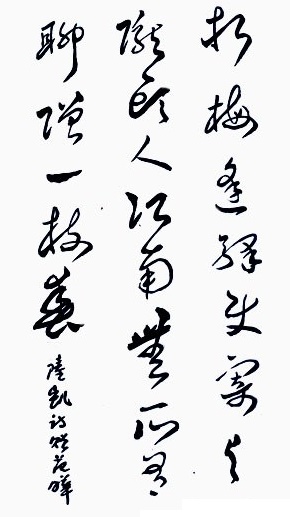 折梅逢驛使寄与
隴頭人江南無所有
聊贈一枝春
陸凱詩贈范曄